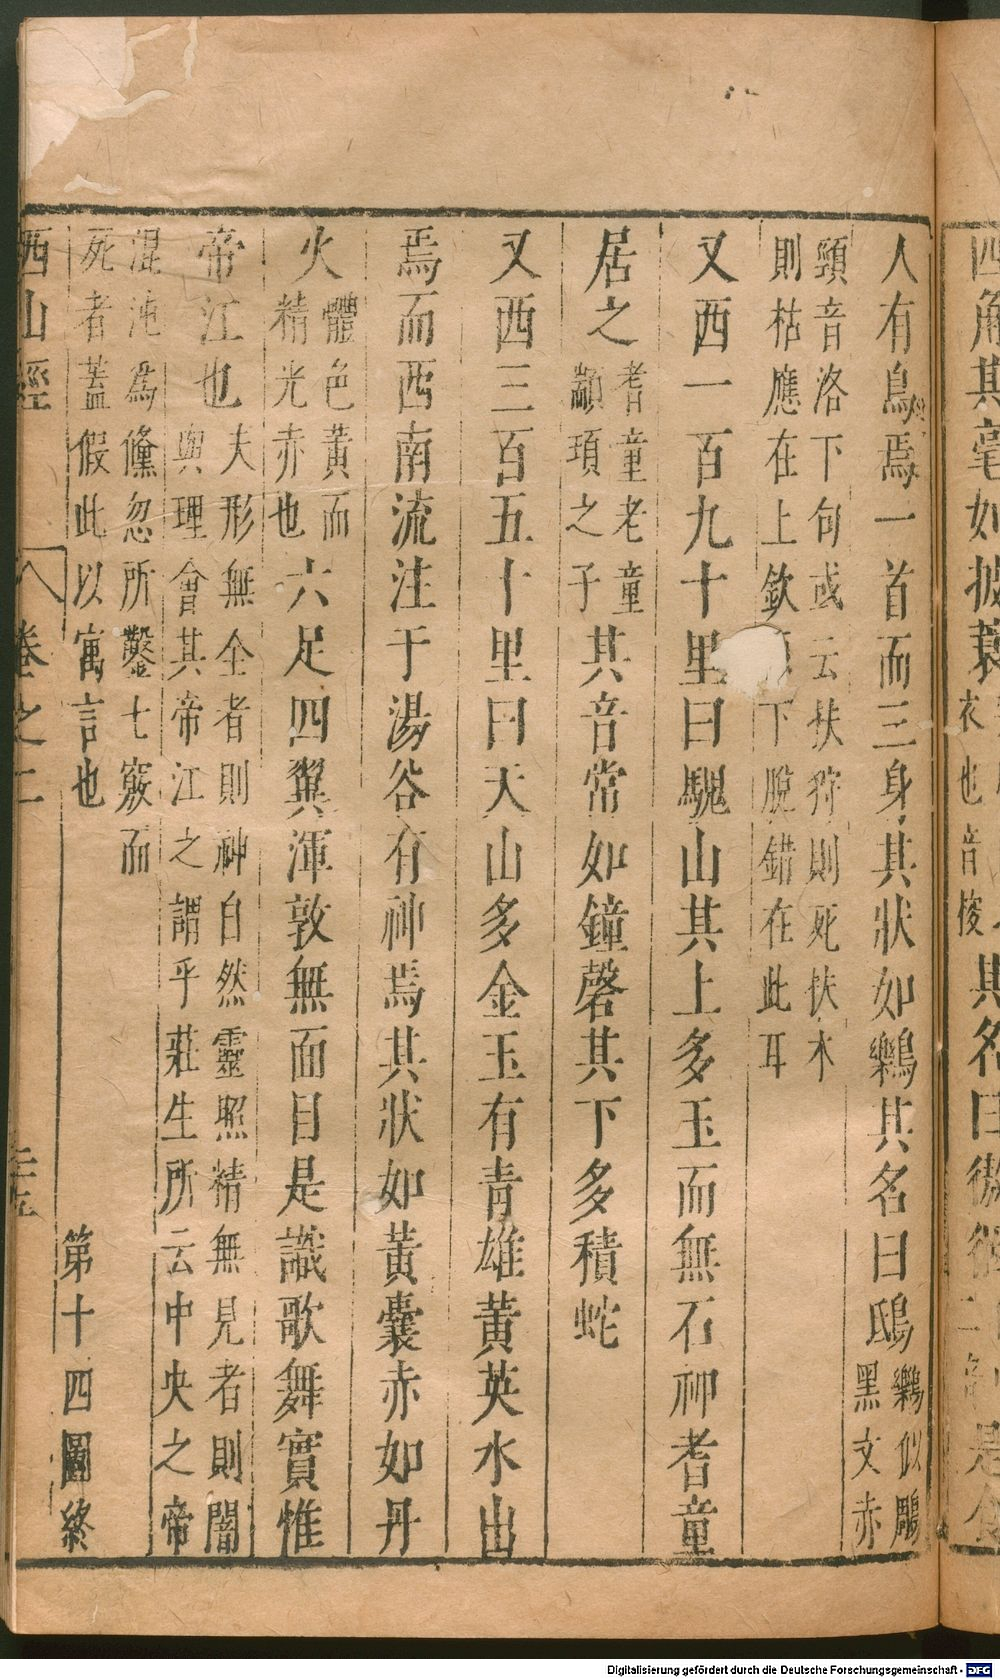 四角其毫如披蓑
衣也音梭
其名曰
是食
人有鳥焉一首而三身其狀如鸈其名曰鴟
鸈似鵰
黑文赤
頸音洛下句或云扶狩則死扶木
則枯應在上欽原下脫錯在此耳
又西一百九十里曰騩山其上多玉而無石神耆童
居之
耆童老童
顓頊之子
其音常如鐘磬其下多積蛇
又西三百五十里曰天山多金玉有青雄黃英水出
焉而西南流注于湯谷有神焉其狀如黃囊赤如丹
火
體色黃而
精光赤也
六足四翼渾敦無面目是識歌舞實惟
帝江也
夫形無全者則神自然靈照精無見者則闇
與理會其帝江之謂乎莊生所云中央之帝
混沌爲儵忽所鑿七竅而
死者蓋假此以寓言也
第十四圖終
西山經
卷之二
三五
Digitalisierung gefördert durch die Deutsche Forschungsgemeinschaft - DFG